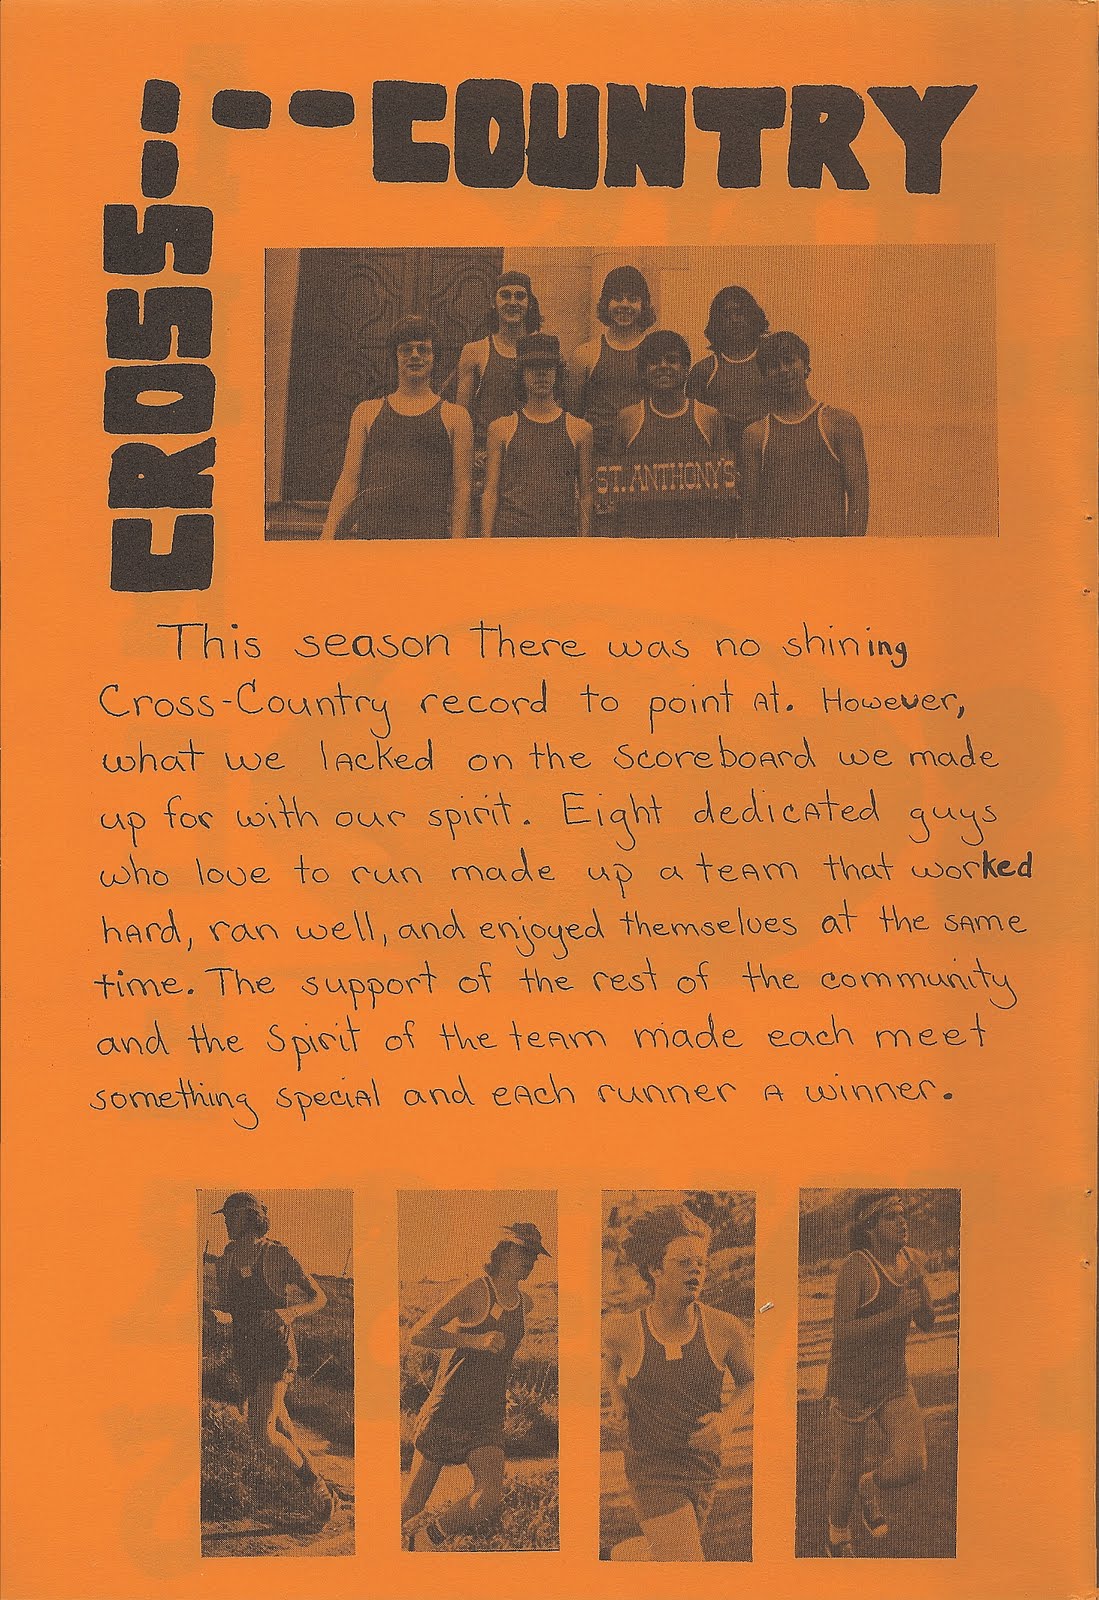 CROSS-----COUNTRY
ST. ANTHONY'S
This season there was no shining
Cross-Country record to point at. However,
what we lacked on the scoreboard we made
up for with our spirit. Eight dedicated guys
who love to run made up a team that worked
hard, ran well, and enjoyed themselves at the same
time. The support of the rest of the community
and the Spirit of the team made each meet
something special and each runner a winner.